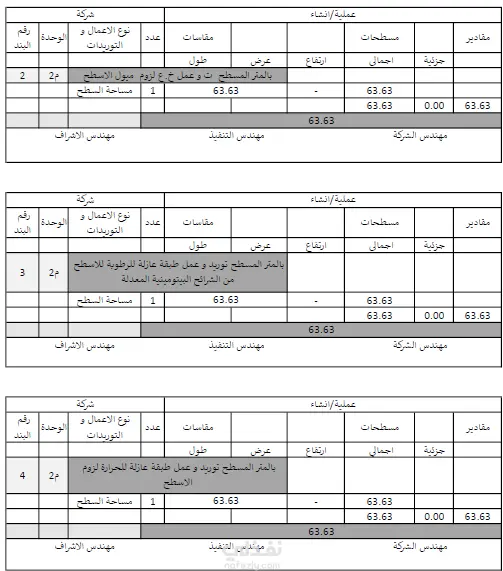 شركة عملية/إنشاء
رقم البند الوحدة نوع الاعمال و التوريدات عدد مقاسات مسطحات مقادير
طول عرض ارتفاع اجمالى جزئية
2 م2 بالمتر المسطح ت و عمل خ ع لزوم ميول الاسطح
مساحة السطح 1 63.63 - 63.63
63.63 0.00 63.63
63.63
مهندس الاشراف مهندس التنفيذ مهندس الشركة
شركة عملية/إنشاء
رقم البند الوحدة نوع الاعمال و التوريدات عدد مقاسات مسطحات مقادير
طول عرض ارتفاع اجمالى جزئية
3 م2 بالمتر المسطح توريد و عمل طبقة عازلة للرطوبة للاسطح
من الشرائح البيتومينية المعدلة
مساحة السطح 1 63.63 - 63.63
63.63 0.00 63.63
63.63
مهندس الاشراف مهندس التنفيذ مهندس الشركة
شركة عملية/إنشاء
رقم البند الوحدة نوع الاعمال و التوريدات عدد مقاسات مسطحات مقادير
طول عرض ارتفاع اجمالى جزئية
4 م2 بالمتر المسطح توريد و عمل طبقة عازلة للحرارة لزوم
الاسطح
مساحة السطح 1 63.63 - 63.63
63.63 0.00 63.63
63.63
مهندس الاشراف مهندس التنفيذ مهندس الشركة
نفذلي
nafezly.com